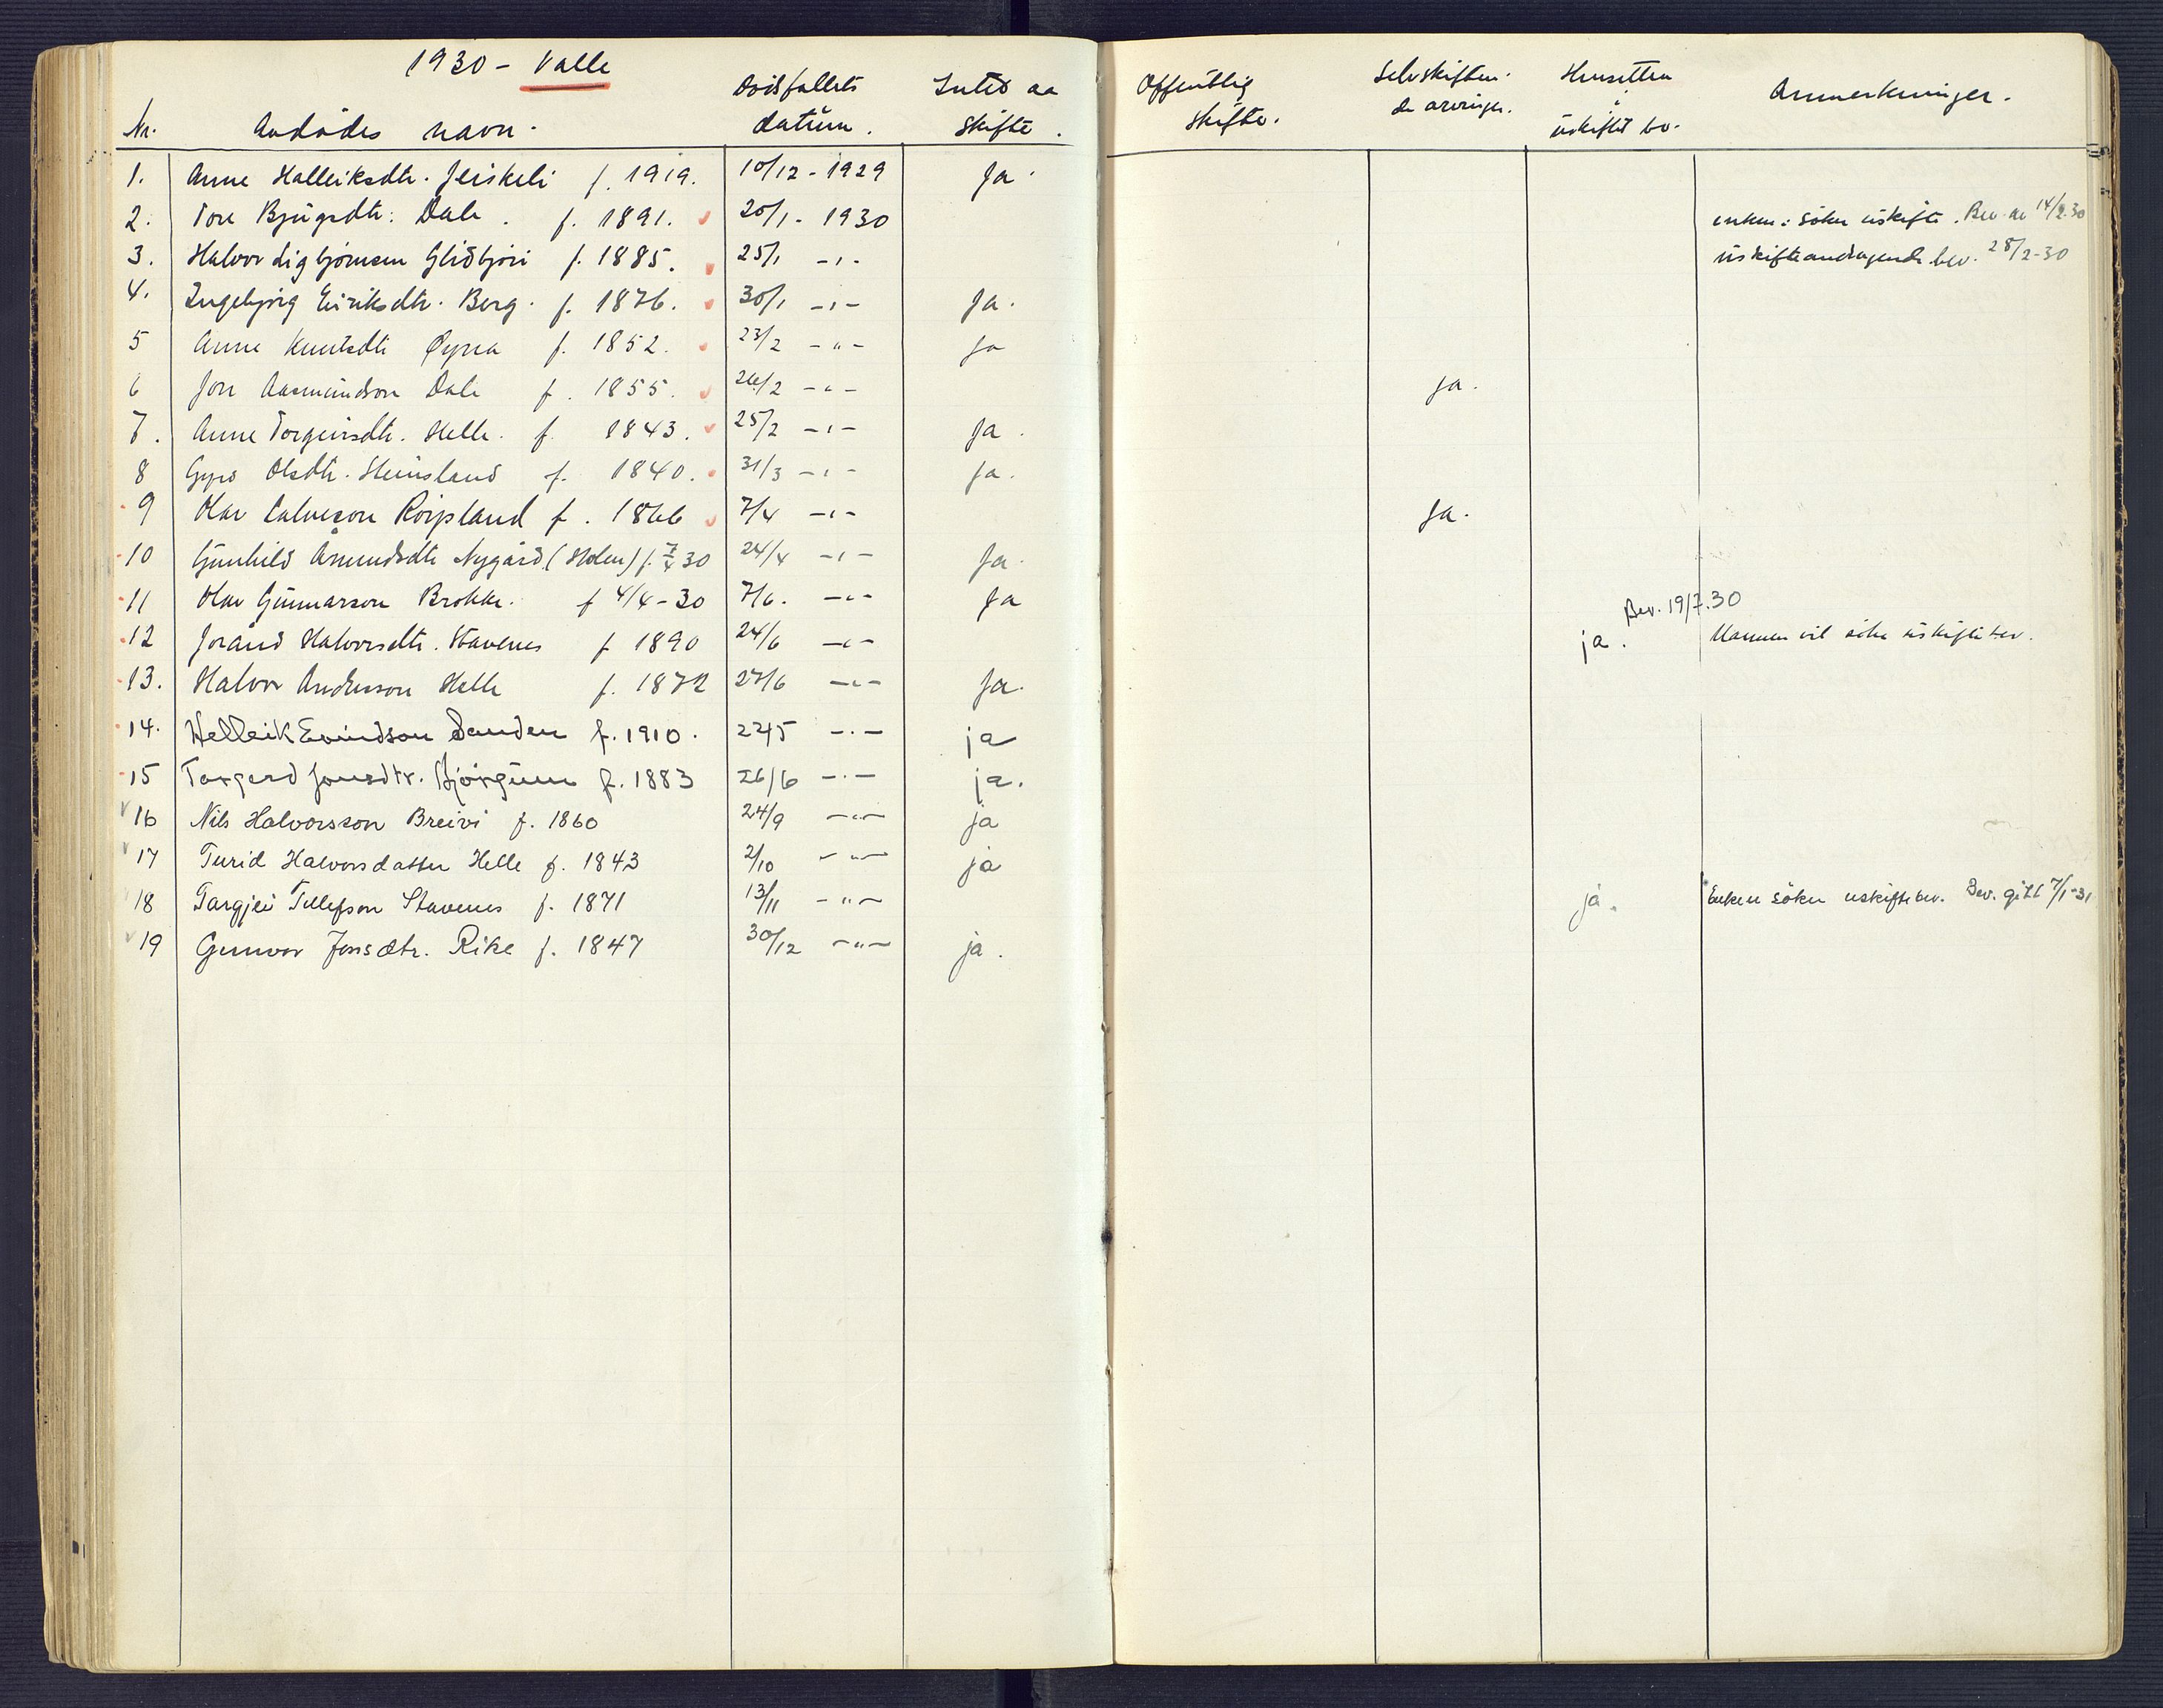 1930 - Valle
Nr. Avdødes navn. Dødsfallets datum. Intet aa skifte. Offentlig skifte. Selvskiften- de arvinger. Hensitten i uskiftet bo. Anmerkninger.
1. Anne Halleiksdtr. f. 1919. 10/12 - 1929 Ja
2. Tore Bjugsdtr. Dale. f. 1891. 20/1 - 1930 enken: søker uskifte. Bev. 14/2.30
3. Halvor Sigbjørnsen Glidbjør f. 1885. 25/1 -"- uskifteandragende bev. 28/2-30
4. Ingebjørg Eiriksdtr. Berg. f. 1876. 30/1 -"- Ja.
5 Anne Knutsdtr Øyna f. 1852. 23/2 -"- Ja
6 Jon Aasmundson Dale f. 1855. 24/2 -"- Ja.
7. Anne Torgeirsdtr. Helle. f. 1843. 25/2 -"- Ja.
8 Gyro Olsdtr. Steinsland f. 1840. 31/3 -"- Ja.
9 Olav Salveson Röysland f. 1866 7/4 -"- Ja.
10 Gunhild Åmundsdtr Nygård (Holen) f. 7/4 30 24/4 -"- Ja.
11 Olav Gunnarson Brokke. f 4/4-30 7/6. -"- Ja
Bev. 19/7.30
12 Jorånd Halvorsdtr. Stavenes f 1890 24/6 -"- ja. Mannen vil søke uskiftebev.
13. Halvor Andersson Helle f. 1872 27/6 -"- Ja.
14. Helleik Evindson Sanden f. 1910. 22/5 -"- ja
15 Targerd Jonsdtr. Bjørgum f. 1883 26/6 -"- ja.
16 Nils Halvorsson Breivi f. 1860 24/9 -"- ja
17 Turid Halvorsdatter Helle f. 1843 2/10 -"- ja
18 Targjei Tellefson Stavenes f. 1871 13/11 -"- ja. Enken søker uskiftebev. Bev. gitt 7/1-31
19 Gunvor Jonsdtr. Rike f. 1847 30/12 -"- ja.